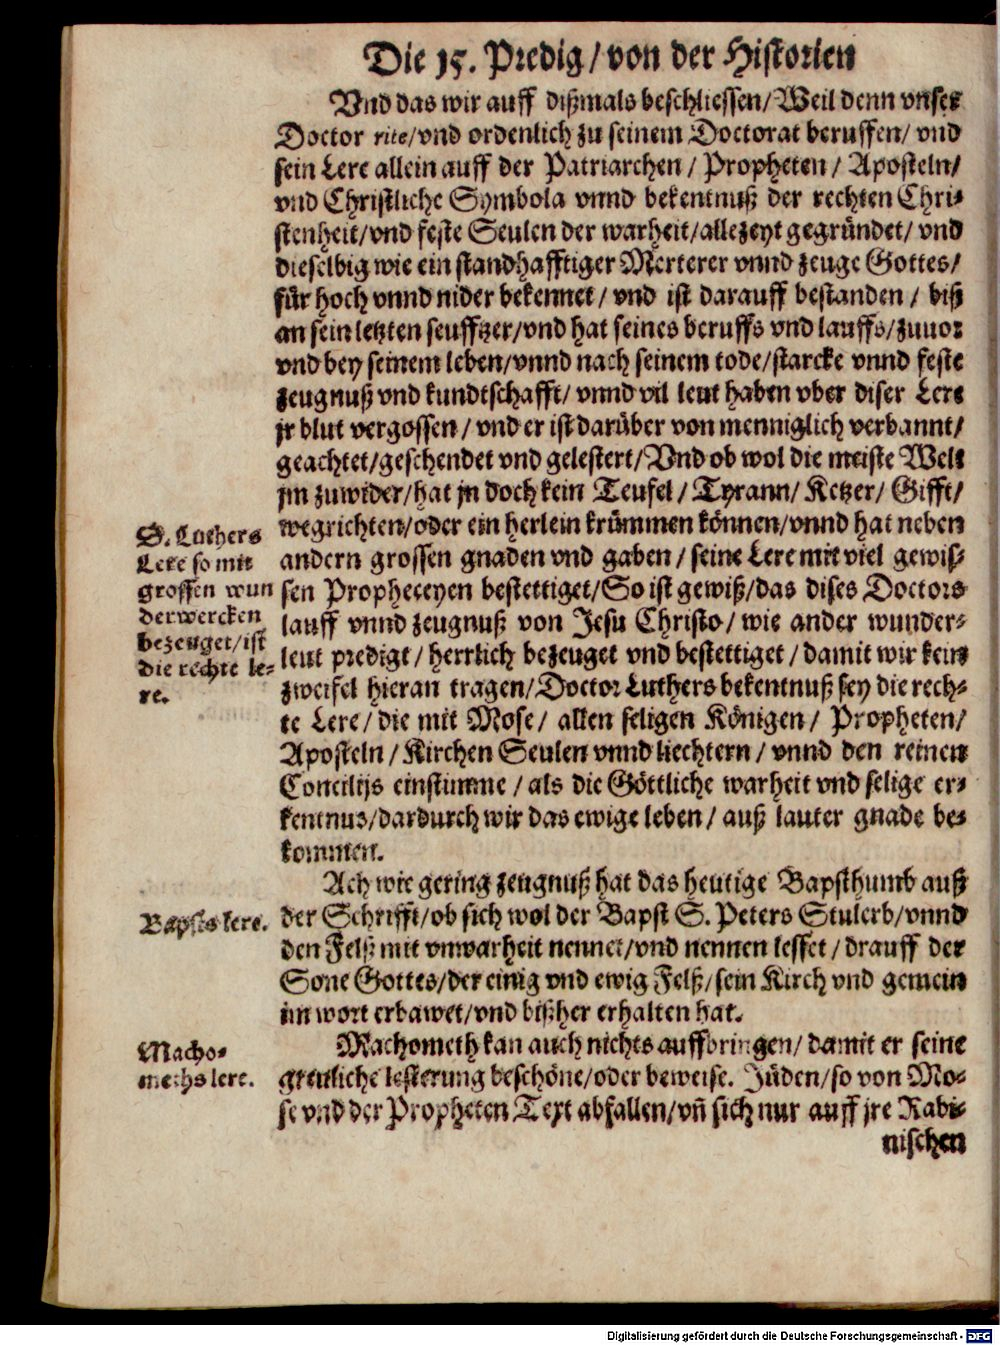 Die 15. Predig / von der Historien
Vnd das wir auff dißmals beschliessen / Weil denn vnser
Doctor rite / vnd ordenlich zu seinem Doctorat beruffen / vnd
sein Lere allein auff der Patriarchen / Propheten / Aposteln /
vnd Christliche Symbola vnnd bekentnuß der rechten Chri-
stenheit / vnd feste Seulen der warheit / allezeyt gegründet / vnd
dieselbig wie ein standhafftiger Merterer vnnd zeuge Gottes /
für hoch vnnd nider bekennet / vnd ist darauff bestanden / biß
an sein letzten seufftzer / vnd hat seines beruffs vnd lauffs / zuuor
vnd bey seinem leben / vnnd nach seinem tode / starcke vnnd feste
zeugnuß vnd kundtschafft / vnnd vil leut haben vber diser Lere
jr blut vergossen / vnd er ist darüber von menniglich verbannt /
geachtet / geschendet vnd gelestert / Vnd ob wol die meiste Welt
jm zuwider / hat jn doch kein Teufel / Tyrann / Ketzer / Gifft /
wegrichten / oder ein herlein krümmen können / vnnd hat neben
andern grossen gnaden vnd gaben / seine Lere mit viel gewis-
sen Propheceyen bestettiget / So ist gewiß / das dises Doctors
lauff vnnd zeugnuß von Jesu Christo / wie ander wunder-
leut predigt / herrlich bezeuget vnd bestettiget / damit wir kein
zweifel hieran tragen / Doctor Luthers bekentnuß sey die rech-
te Lere / die mit Mose / allen seligen Königen / Propheten /
Aposteln / Kirchen Seulen vnnd liechtern / vnnd den reinen
Concilijs einstimme / als die Göttliche warheit vnd selige er-
kentnus / dardurch wir das ewige leben / auß lauter gnade be-
kommen.
D. Luthers
Lere so mit
grossen wun
derwercken
bezeuget / ist
die rechte le-
re.
Ach wie gering zeugnuß hat das heutige Bapsthumb auß
der Schrifft / ob sich wol der Bapst S. Peters Stulerb / vnnd
den Felß mit vnwarheit nennet / vnd nennen lesset / drauff der
Sone Gottes / der einig vnd ewig Felß / sein Kirch vnd gemein
im wort erbawet / vnd bißher erhalten hat.
Bapsts lere.
Machometh kan auch nichts auffbringen / damit er seine
greuliche lesterung beschöne / oder beweise. Jüden / so von Mo-
se vnd der Propheten Text abfallen / vñ sich nur auff jre Rabi-
nischen
Macho-
meths lere.
Digitalisierung gefördert durch die Deutsche Forschungsgemeinschaft - DFG